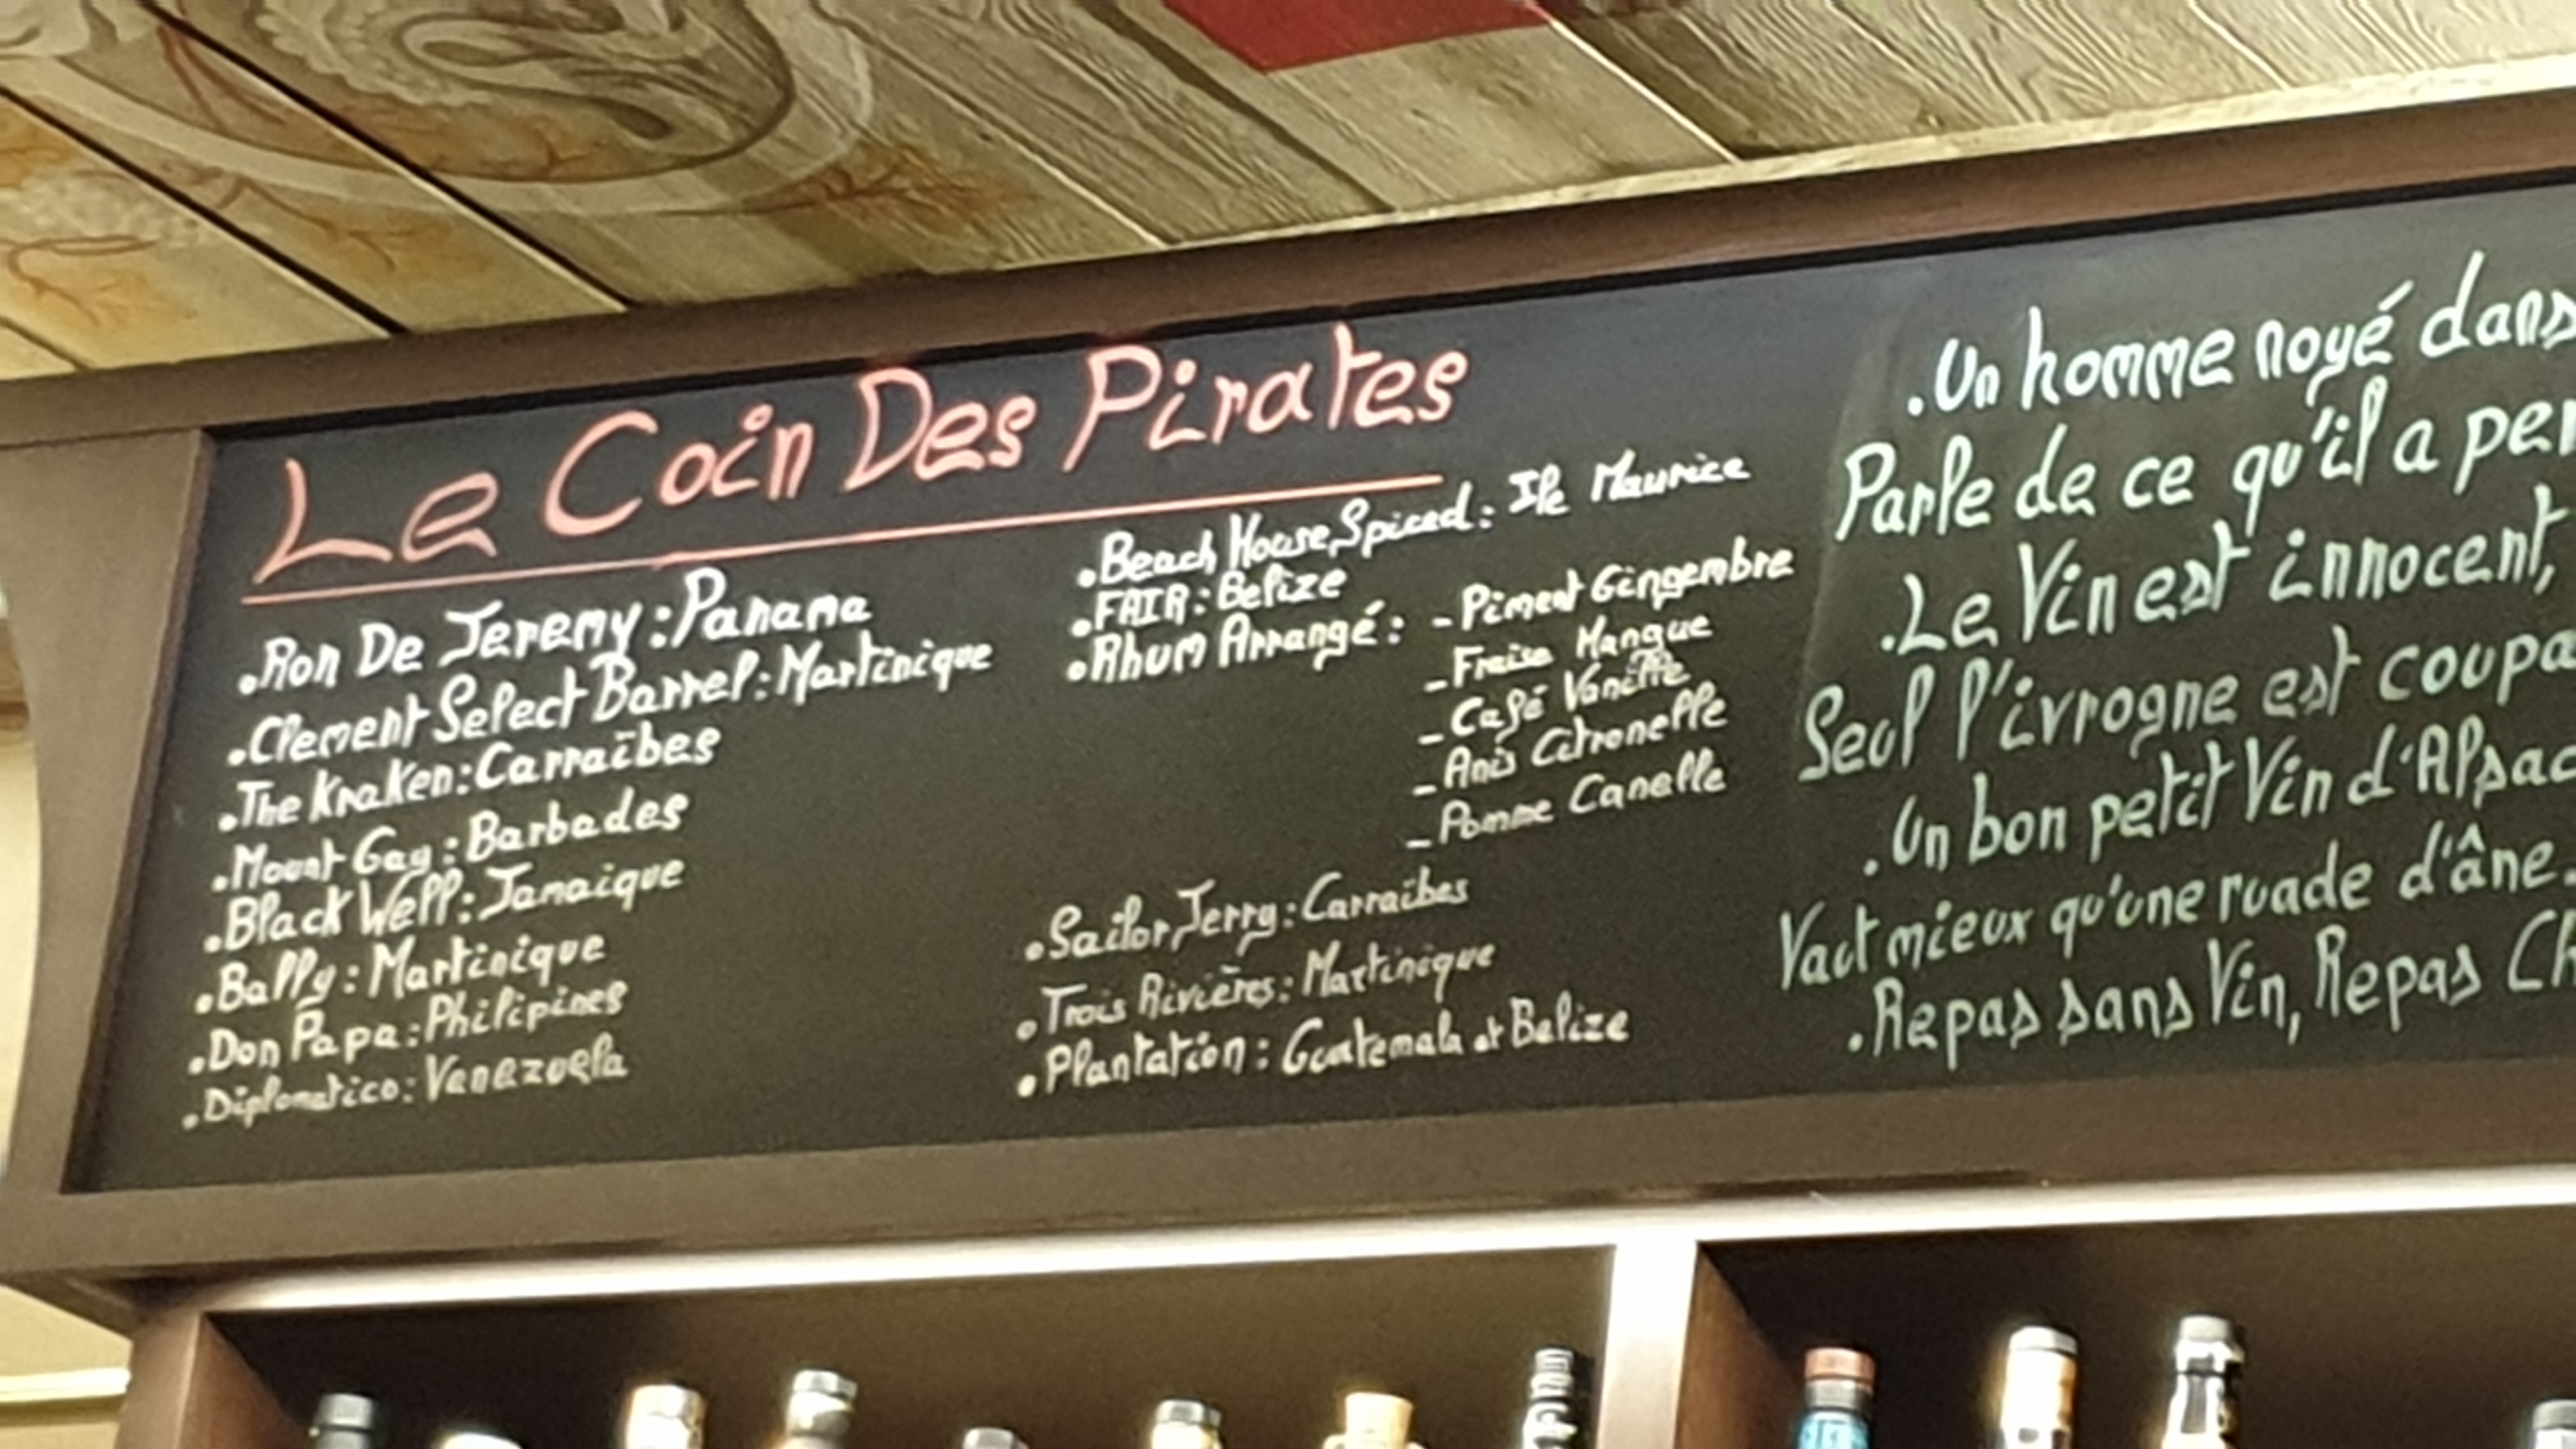 Le Coin Des Pirates
.Ron De Jeremy:Panama
.Clement Select Barrel:Martinique
.The Kraken:Carraïbes
.Mount Gay:Barbades
.Black Well:Jamaique
.Bally:Martinique
.Don Papa:Philipines
.Diplomatico:Venezuela
.Beach House Spiced: Ile Maurice
.FAIR:Belize
.Rhum Arrangé: -Piment Gingembre
-Fraise Mangue
-Café Vanille
-Anis Citronelle
-Pomme Canelle
.Sailor Jerry:Carraïbes
.Trois Rivières:Martinique
.Plantation: Guatemala et Belize
.Un homme noyé dans
Parle de ce qu'il a per
.Le Vin est innocent,
Seul l'ivrogne est coupa
.Un bon petit Vin d'Alsac
Vaut mieux qu'une ruade d'âne.
.Repas sans Vin, Repas Ch